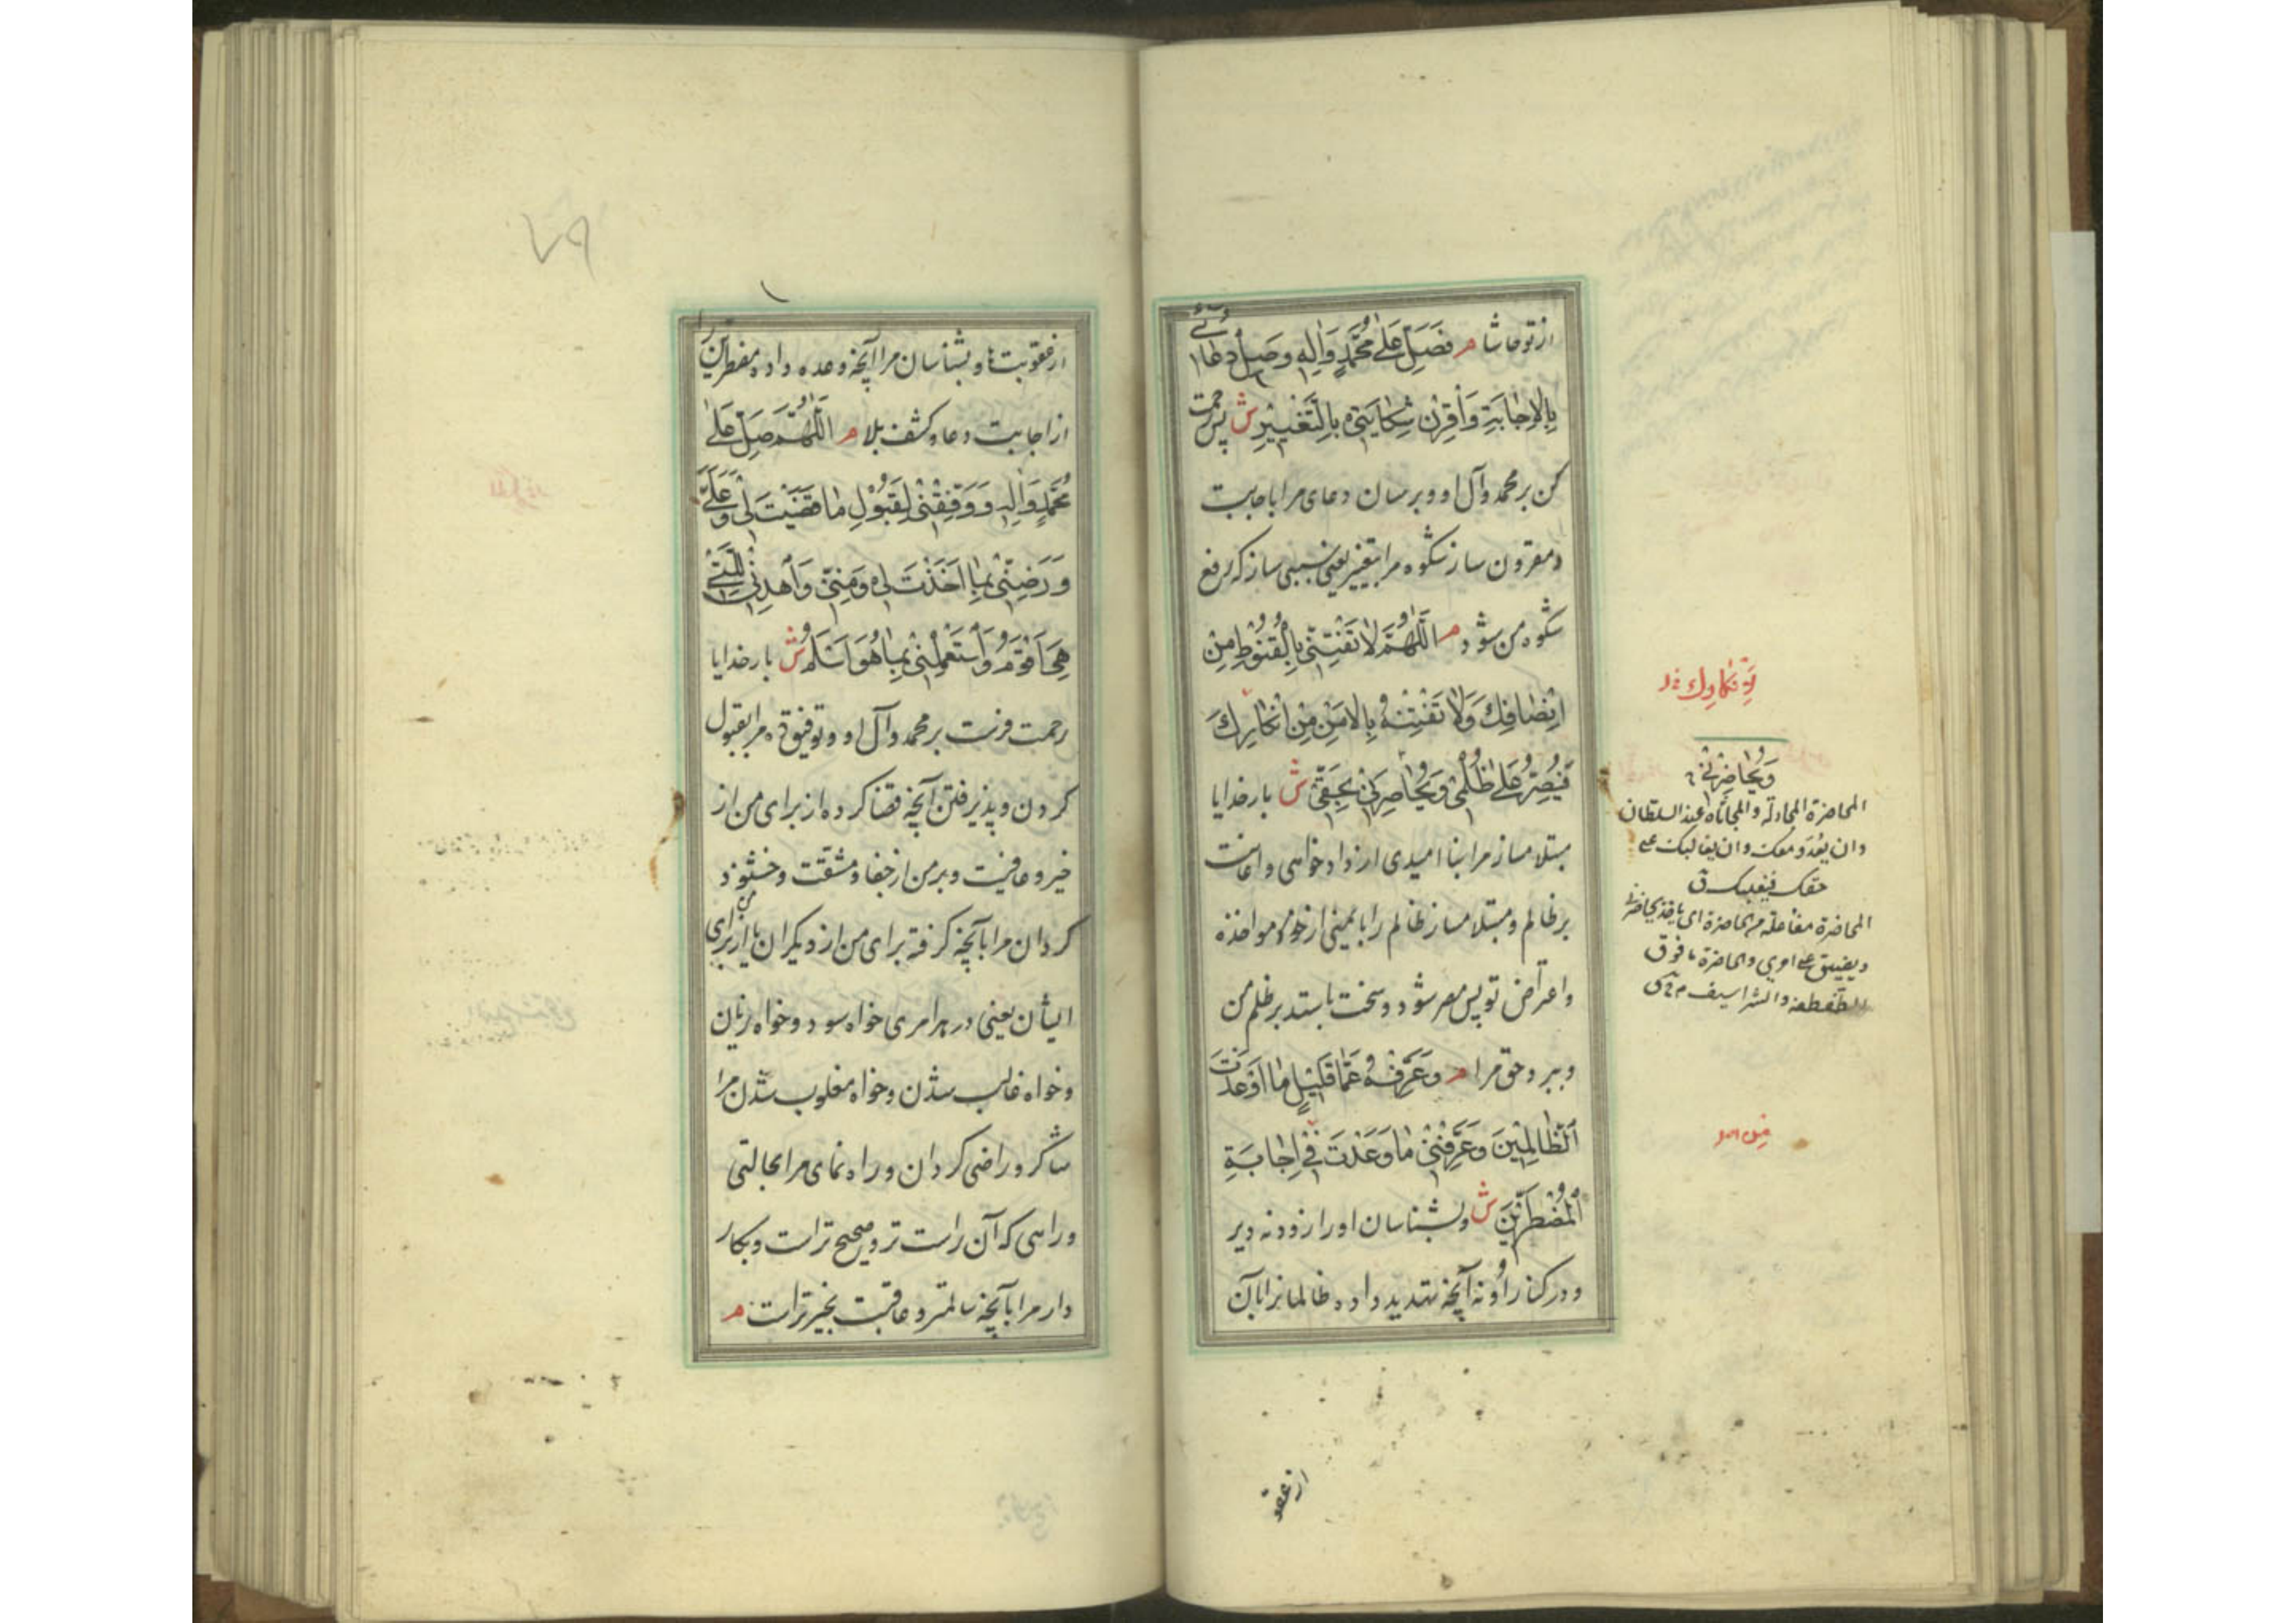 از تو حاشا م فَصَلِّ عَلٰى مُحَمَّدٍ وَاٰلِهِ وَصِلْ دُعَائِي
بِالْاِجَابَةِ وَأَقْرِنْ شِكَايَتِي بِالتَّغْيِيرِ ش پس رحمت
کن بر محمد وآل او و برسان دعای مرا باجابت
و مقرون ساز شکوه مرا بتغییر یعنی سببی ساز که رفع
شکوه من شود م اَللّٰهُمَّ لَا تَفْتِنِّي بِالْقُنُوطِ مِنْ
اِنْصَافِكَ وَلَا تَفْتِنْهُ بِالْاَمْنِ مِنْ اِنْكَارِكَ
فَيُصِرَّ عَلٰى ظُلْمِي وَيُحَاصِرَنِي بِحَقِّي ش بار خدایا
مبتلا مساز مرا بنا امیدی از داد خواهی و اعانت
بر ظالم و مبتلا مساز ظالم را بایمنی از مواخذه
و اعتراض تو پس مصر شود و سخت بایستد بر ظلم من
و ببرد حق مرا م وَعَرِّفْهُ عَمَّا قَلِيلٍ مَا اَوْعَدْتَ
الظَّالِمِينَ وَعَرِّفْنِي مَا وَعَدْتَ فِي اِجَابَةِ
الْمُضْطَرِّينَ ش و بشناسان او را زود نه دیر
و در کنار او نه آنچه تهدید داده ظالمانرا بآن
وَيُحَاضِرَنِي
المحاضرة المجادلة والمجاثاة عند السلطان
وان يعدو معك وان يغالبك على
حقك فيغلبك ق
از عقو
۷۹
از عقوبتها و بشناسان مرا آنچه وعده داده مضطرین را
از اجابت دعا و کشف بلا م اَللّٰهُمَّ صَلِّ عَلٰى
مُحَمَّدٍ وَاٰلِهِ وَوَفِّقْنِي لِقَبُولِ مَا قَضَيْتَ لِي وَعَلَيَّ
وَرَضِّنِي بِمَا اَخَذْتَ لِي وَمِنِّي وَاهْدِنِي لِلَّتِي
هِيَ اَقْوَمُ وَاسْتَعْمِلْنِي بِمَا هُوَ اَسْلَمُ ش بار خدایا
رحمت فرست بر محمد وآل او و توفیق ده مرا بقبول
کردن و پذیرفتن آنچه قضا کرده از برای من از
خیر و عافیت و بر من از جفا و مشقت و خشنود
گردان مرا بآنچه گرفته برای من از دیگران یا از من برای
ایشان یعنی در هر امری خواه سود و خواه زیان
و خواه غالب شدن و خواه مغلوب شدن مرا
شاکر و راضی گردان و راه نمای مرا بحالتی
و راهی که آن راست تر و صحیح تر است و بکار
دار مرا بآنچه سالمتر و عاقبت بخیر تر است م